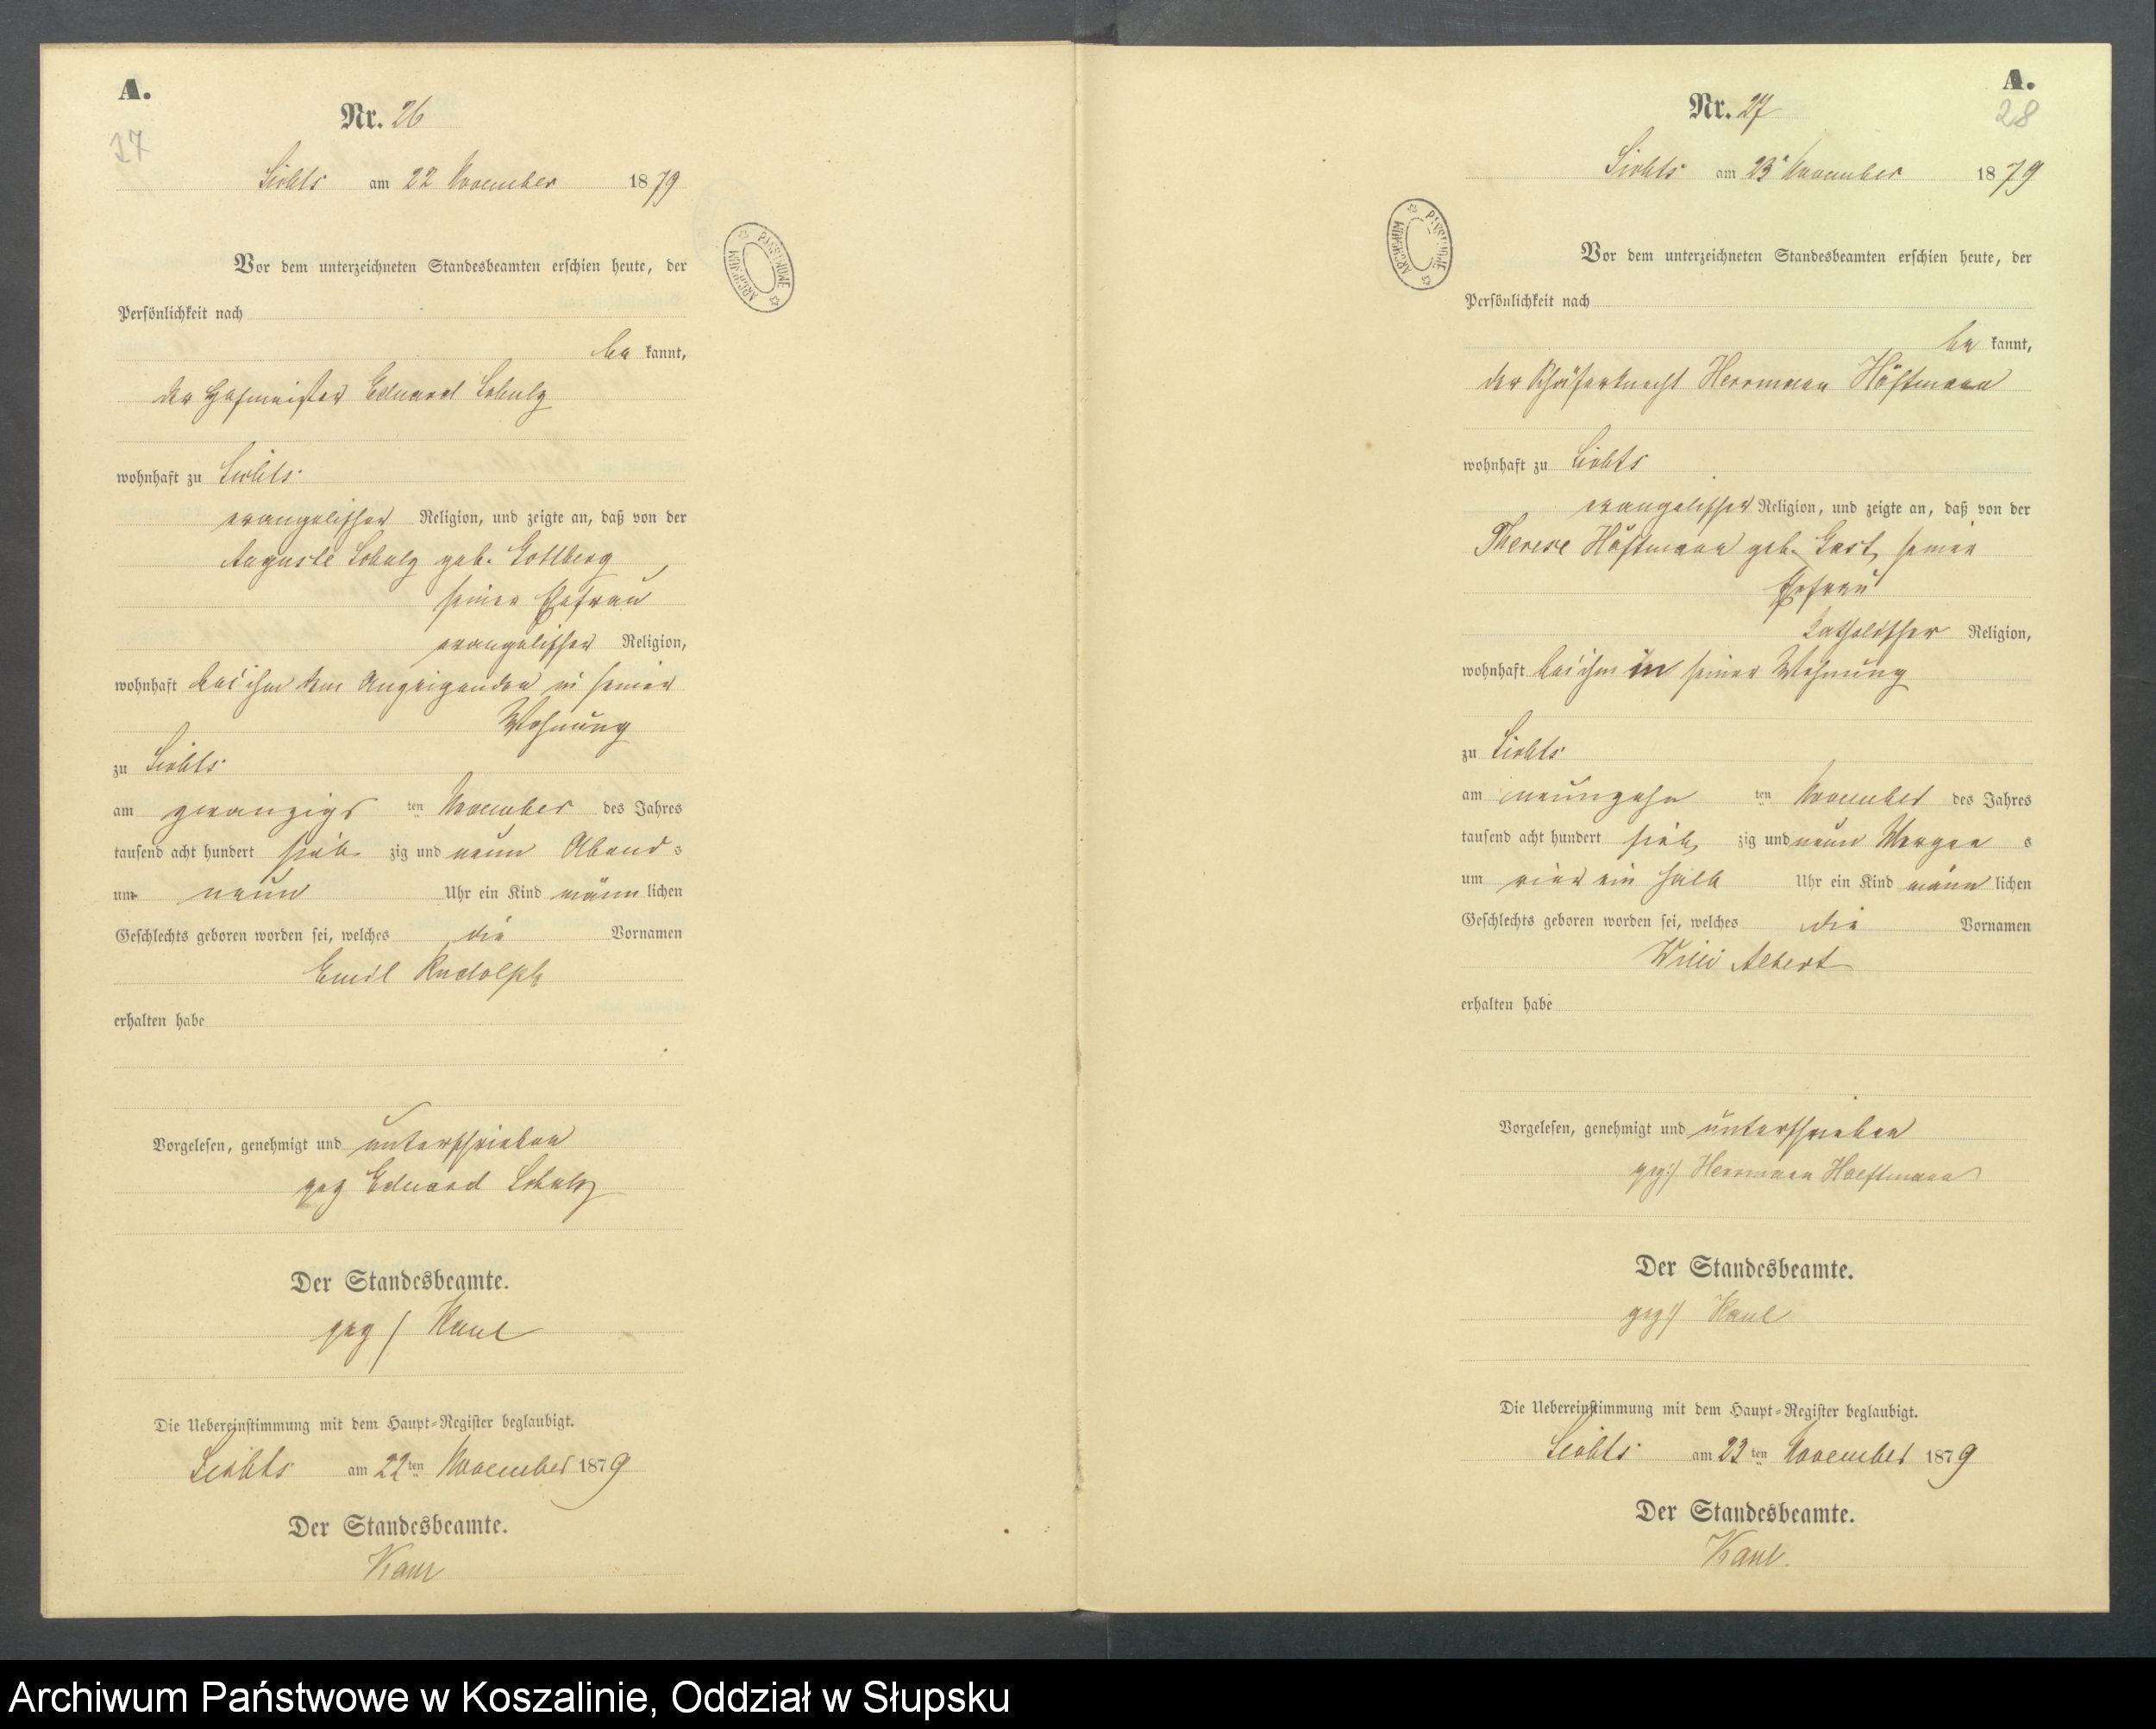 A.
27
Nr. 26
am 22 November 1879
Vor dem unterzeichneten Standesbeamten erschien heute, der
Persönlichkeit nach
be kannt,
der Hofmeister Eduard Schulz
wohnhaft zu
evangelischer Religion, und zeigte an, daß von der
Auguste Schulz geb. Gottberg,
seiner Ehefrau
evangelischer Religion,
wohnhaft bei ihm dem Anzeigenden in seiner
Wohnung
zu
am zwanzigs ten November des Jahres
tausend acht hundert sieb zig und neun Abend s
um neun Uhr ein Kind männ lichen
Geschlechts geboren worden sei, welches die Vornamen
Emil Rudolph
erhalten habe
Vorgelesen, genehmigt und unterschrieben
gez Eduard Schulz
Der Standesbeamte.
gez / Kaul
Die Uebereinstimmung mit dem Haupt-Register beglaubigt.
am 22 ten November 1879
Der Standesbeamte.
Kaul
A.
28
Nr. 27
am 23 November 1879
Vor dem unterzeichneten Standesbeamten erschien heute, der
Persönlichkeit nach
be kannt,
der Schäferknecht Herrmann Höftmann
wohnhaft zu
evangelischer Religion, und zeigte an, daß von der
Therese Höftmann geb. seiner
Ehefrau
katholischer Religion,
wohnhaft bei ihm in seiner Wohnung
zu
am neunzehn ten November des Jahres
tausend acht hundert sieb zig und neun Morgen s
um vier ein halb Uhr ein Kind männ lichen
Geschlechts geboren worden sei, welches die Vornamen
Willi Albert
erhalten habe
Vorgelesen, genehmigt und unterschrieben
gez:/ Herrmann Hoeftmann
Der Standesbeamte.
gez:/ Kaul
Die Uebereinstimmung mit dem Haupt-Register beglaubigt.
am 23 ten November 1879
Der Standesbeamte.
Kaul.
ARCHIWUM PAŃSTWOWE
ARCHIWUM PAŃSTWOWE
Archiwum Państwowe w Koszalinie, Oddział w Słupsku